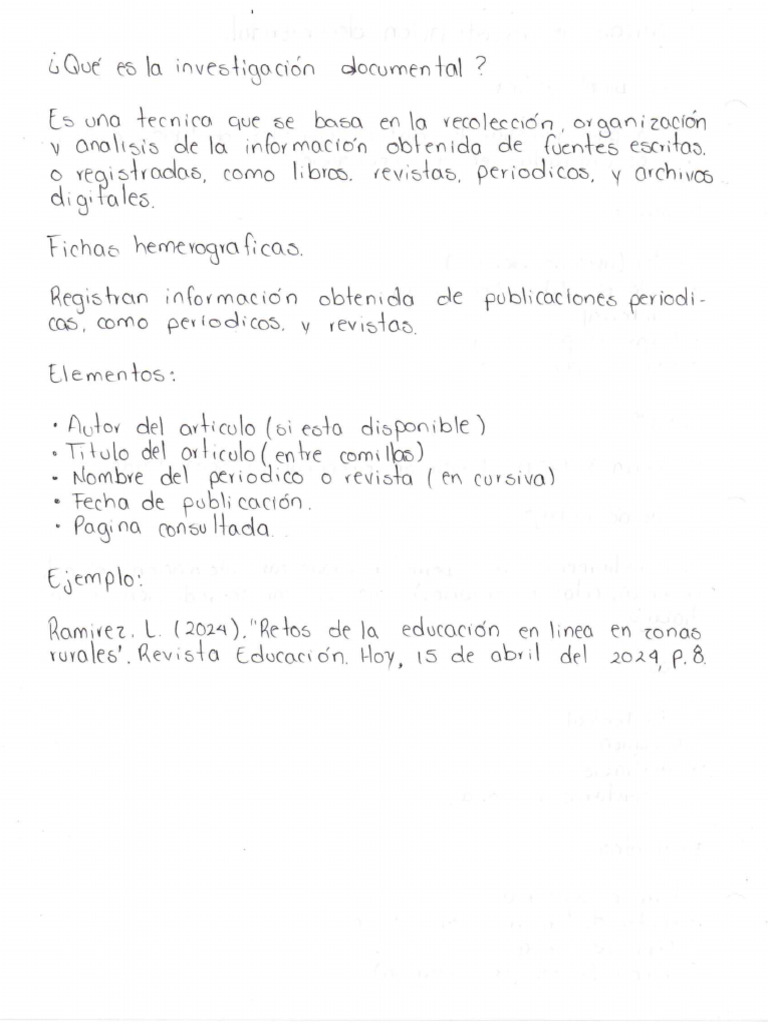 ¿Qué es la investigación documental?
Es una tecnica que se basa en la recolección, organización
y analisis de la información obtenida de fuentes escritas.
o registradas, como libros. revistas, periodicos, y archivos
digitales.
Fichas hemerograficas.
Registran información obtenida de publicaciones periodi-
cas, como periodicos. y revistas.
Elementos:
• Autor del articulo (si esta disponible)
• Titulo del articulo (entre comillas)
• Nombre del periodico o revista (en cursiva)
• Fecha de publicación.
• Pagina consultada.
Ejemplo:
Ramirez. L. (2024). "Retos de la educación en linea en zonas
rurales". Revista Educación. Hoy, 15 de abril del 2024, p. 8.